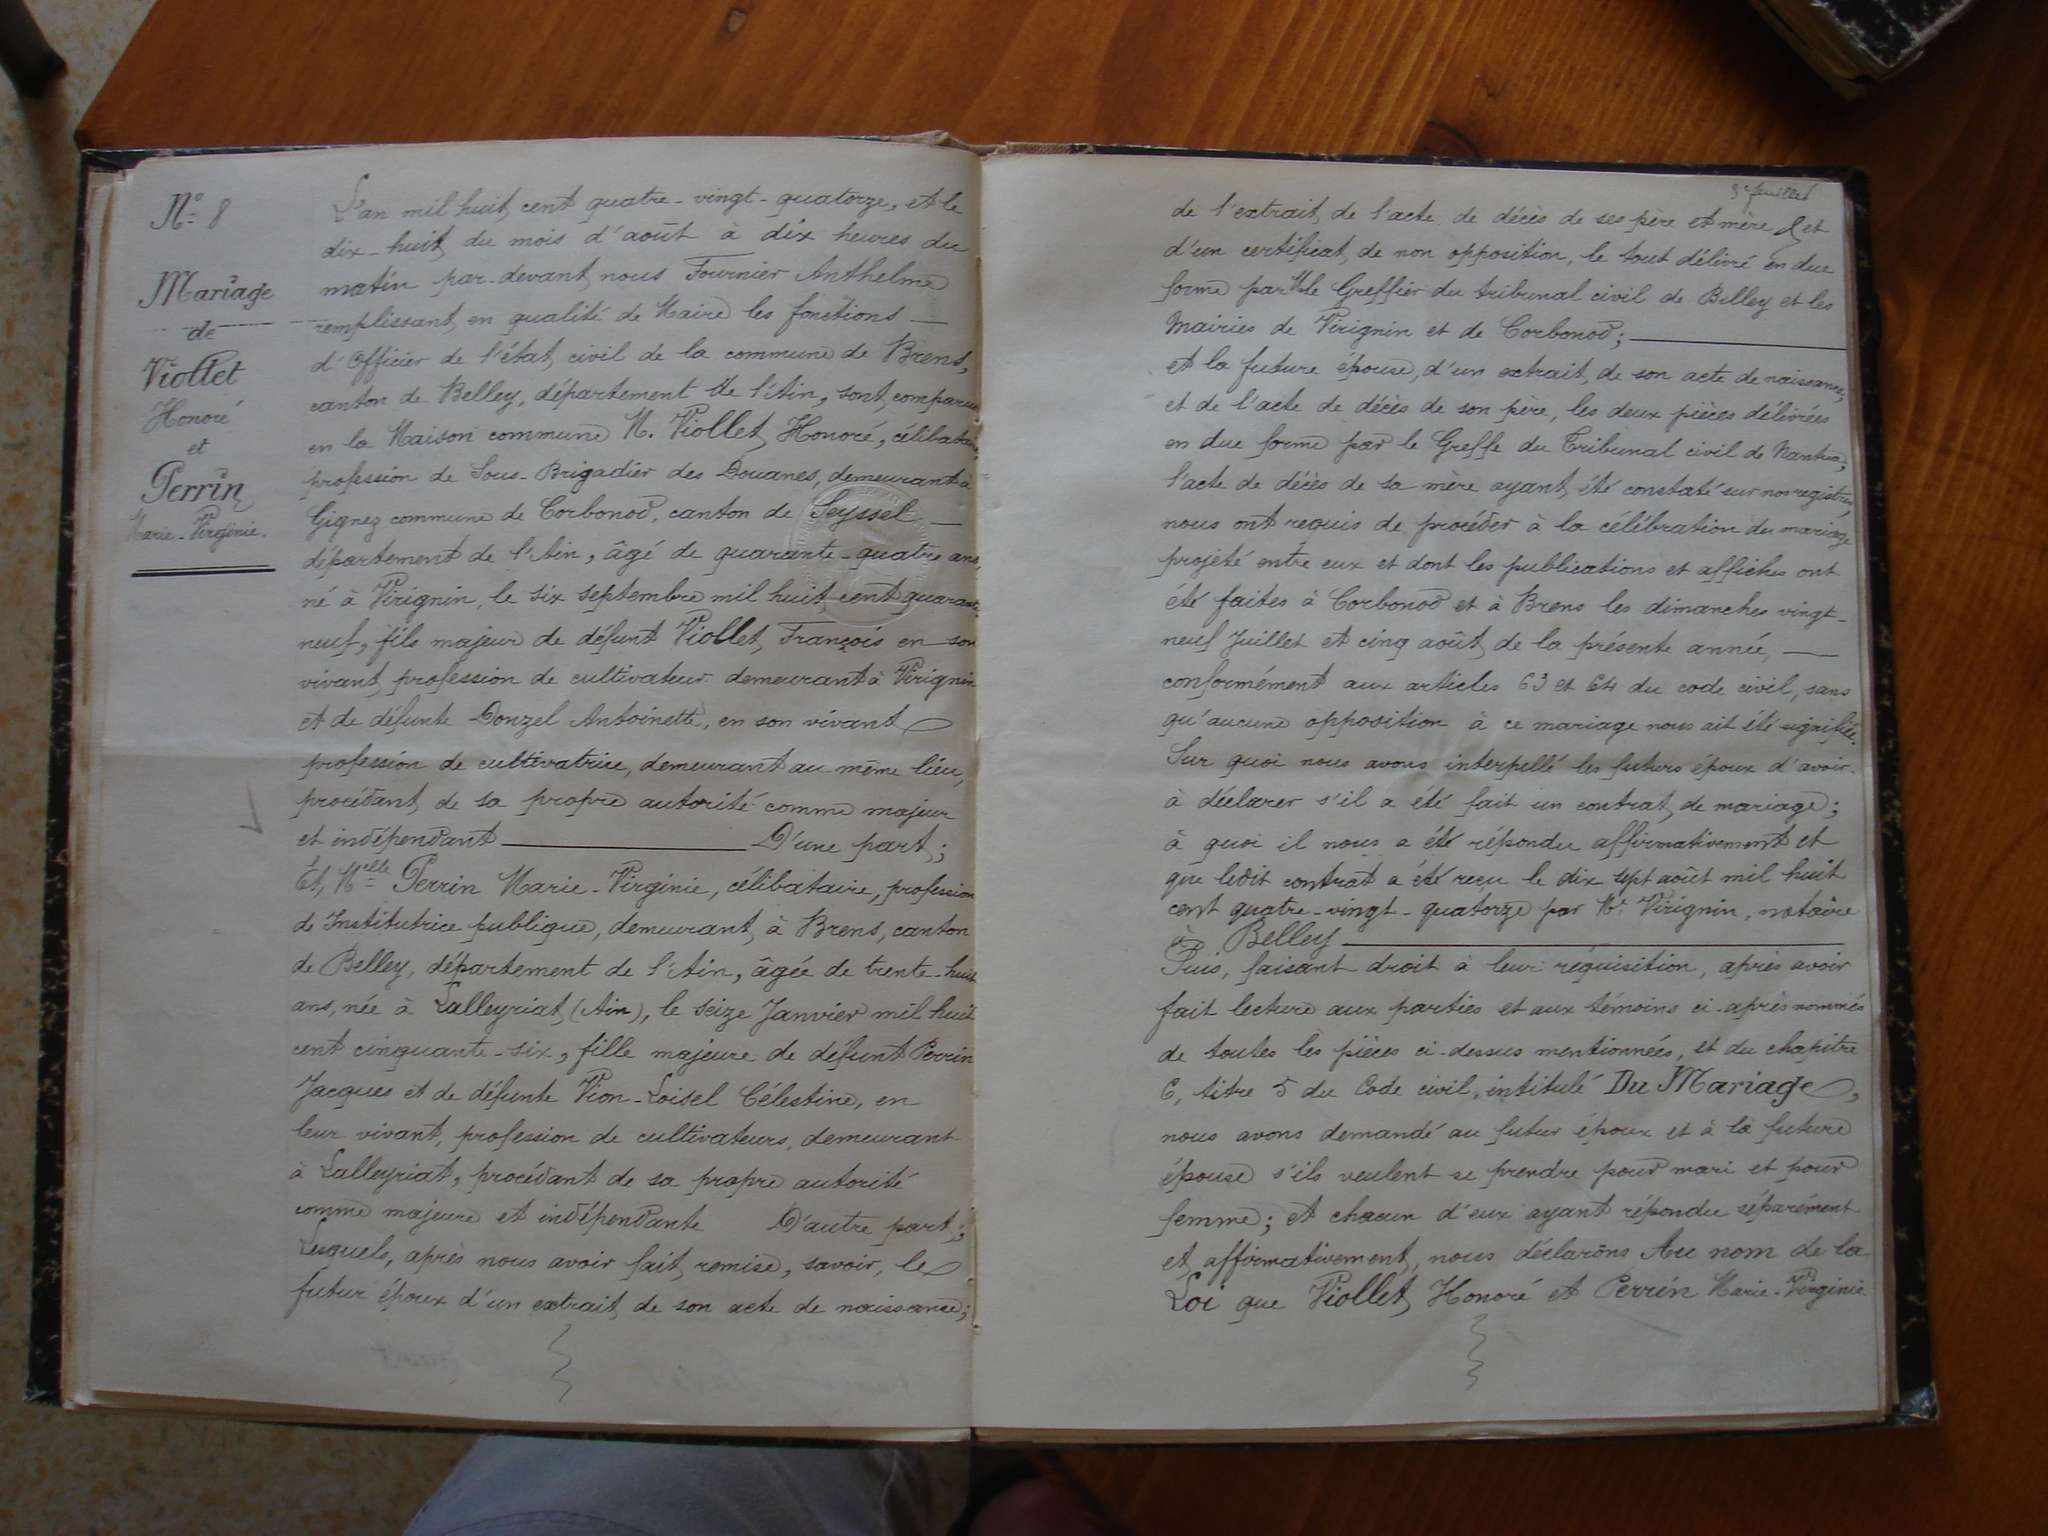 N° 8
Mariage
de
Viollet
Honoré
et
Perrin
Marie-Virginie.
L'an mil huit cent quatre-vingt-quatorze, et le
dix-huit du mois d'août à dix heures du
matin par-devant nous Fournier Anthelme
remplissant en qualité de Maire les fonctions
d'Officier de l'état civil de la commune de Brens,
canton de Belley, département de l'Ain, sont comparus
en la Maison commune M. Viollet Honoré, célibataire,
profession de Sous-Brigadier des Douanes, demeurant à
Gignez commune de Corbonod, canton de Seyssel
département de l'Ain, âgé de quarante-quatre ans,
né à Virignin, le six septembre mil huit cent quarante
neuf, fils majeur de défunt Viollet François en son
vivant profession de cultivateur demeurant à Virignin
et de défunte Donzel Antoinette, en son vivant
profession de cultivatrice, demeurant au même lieu,
procédant de sa propre autorité comme majeur
et indépendant D'une part;
Et Melle Perrin Marie-Virginie, célibataire, profession
de Institutrice publique, demeurant à Brens, canton
de Belley, département de l'Ain, âgée de trente-huit
ans, née à Lalleyriat (Ain), le seize Janvier mil huit
cent cinquante-six, fille majeure de défunt Perrin
Jacques et de défunte Vion-Loisel Célestine, en
leur vivant, profession de cultivateurs, demeurant
à Lalleyriat, procédant de sa propre autorité
comme majeure et indépendante D'autre part;
Lesquels, après nous avoir fait remise, savoir, le
futur époux d'un extrait de son acte de naissance;
3e feuillet
de l'extrait de l'acte de décès de ses père et mère et
d'un certificat de non opposition, le tout délivré en due
forme par le Greffier du tribunal civil de Belley et les
Mairies de Virignin et de Corbonod;
et la future épouse, d'un extrait de son acte de naissance,
et de l'acte de décès de son père, les deux pièces délivrées
en due forme par le Greffe du Tribunal civil de Nantua;
l'acte de décès de sa mère ayant été constaté sur nos registres,
nous ont requis de procéder à la célébration du mariage
projeté entre eux et dont les publications et affiches ont
été faites à Corbonod et à Brens les dimanches vingt-
neuf Juillet et cinq août de la présente année,
conformément aux articles 63 et 64 du code civil, sans
qu'aucune opposition à ce mariage nous ait été signifiée.
Sur quoi nous avons interpellé les futurs époux d'avoir
à déclarer s'il a été fait un contrat de mariage;
à quoi il nous a été répondu affirmativement et
que ledit contrat a été reçu le dix sept août mil huit
cent quatre-vingt-quatorze par Me Virignin, notaire
à Belley
Puis, faisant droit à leur réquisition, après avoir
fait lecture aux parties et aux témoins ci-après nommés
de toutes les pièces ci-dessus mentionnées, et du chapitre
6, titre 5 du Code civil, intitulé Du Mariage,
nous avons demandé au futur époux et à la future
épouse s'ils veulent se prendre pour mari et pour
femme; et chacun d'eux ayant répondu séparément
et affirmativement, nous déclarons Au nom de la
Loi que Viollet Honoré et Perrin Marie-Virginie